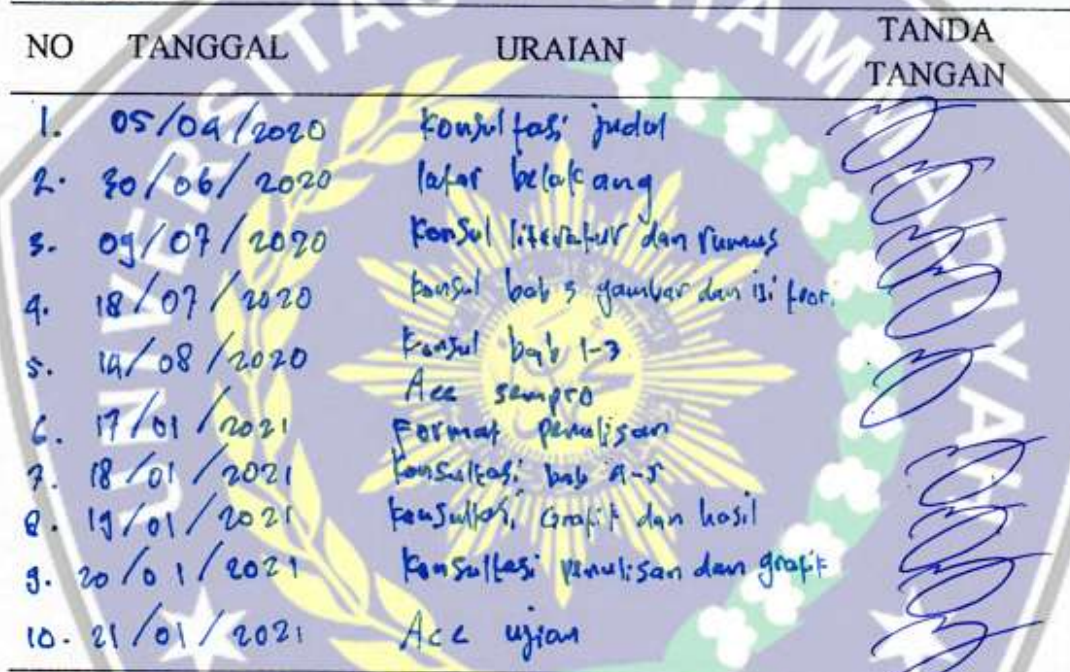 NO TANGGAL URAIAN TANDA TANGAN
1. 05/04/2020 Konsultasi judul
2. 30/06/2020 latar belakang
3. 09/07/2020 Konsul literatur dan rumus
4. 18/07/2020 Konsul bab 3 gambar dan isi
5. 14/08/2020 Konsul bab 1-3
Acc sempro
6. 17/01/2021 Format penulisan
7. 18/01/2021 Konsultasi bab 4-5
8. 19/01/2021 Konsultasi, Grafik dan hasil
9. 20/01/2021 Konsultasi penulisan dan grafik
10. 21/01/2021 Acc ujian
UNIVERSITAS MUHAMMADIYAH